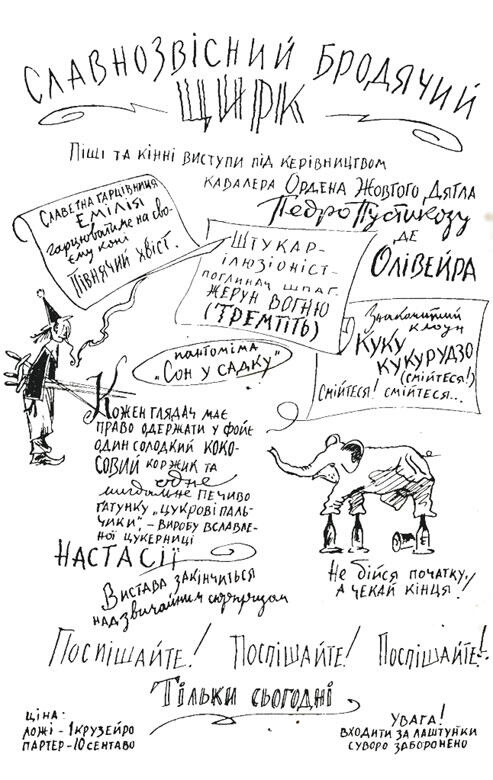 Славнозвісний бродячий
ЩИРК
Піші та кінні виступи під керівництвом
кавалера Ордена Жовтого Дятла
Педро Пустикозу
де
Олівейра
Славетна гарцівниця
Емілія
гарцюватиме на сво-
єму коні
Півнячий хвіст.
Штукар-
ілюзіоніст-
поглинач шпаг.
Жерун вогню
(Тремтіть)
Знаменитий
клоун
Куку
Кукурудзо
(Смійтеся!)
Смійтеся! Смійтеся...
пантоміма
„Сон у садку"
Кожен глядач має
право одержати у фойє
один солодкий коко-
совий коржик та
одне
мигдальне печиво
ґатунку „Цукрові паль-
чики", - виробу вславле-
ної цукерниці
Настасії
Вистава закінчиться
надзвичайним сюрпризом
Не бійся початку,
а чекай кінця!
Поспішайте! Поспішайте! Поспішайте!
Тільки сьогодні
Ціна:
Ложі - 1 крузейро
Партер - 10 сентаво
Увага!
Входити за лаштунки
суворо заборонено